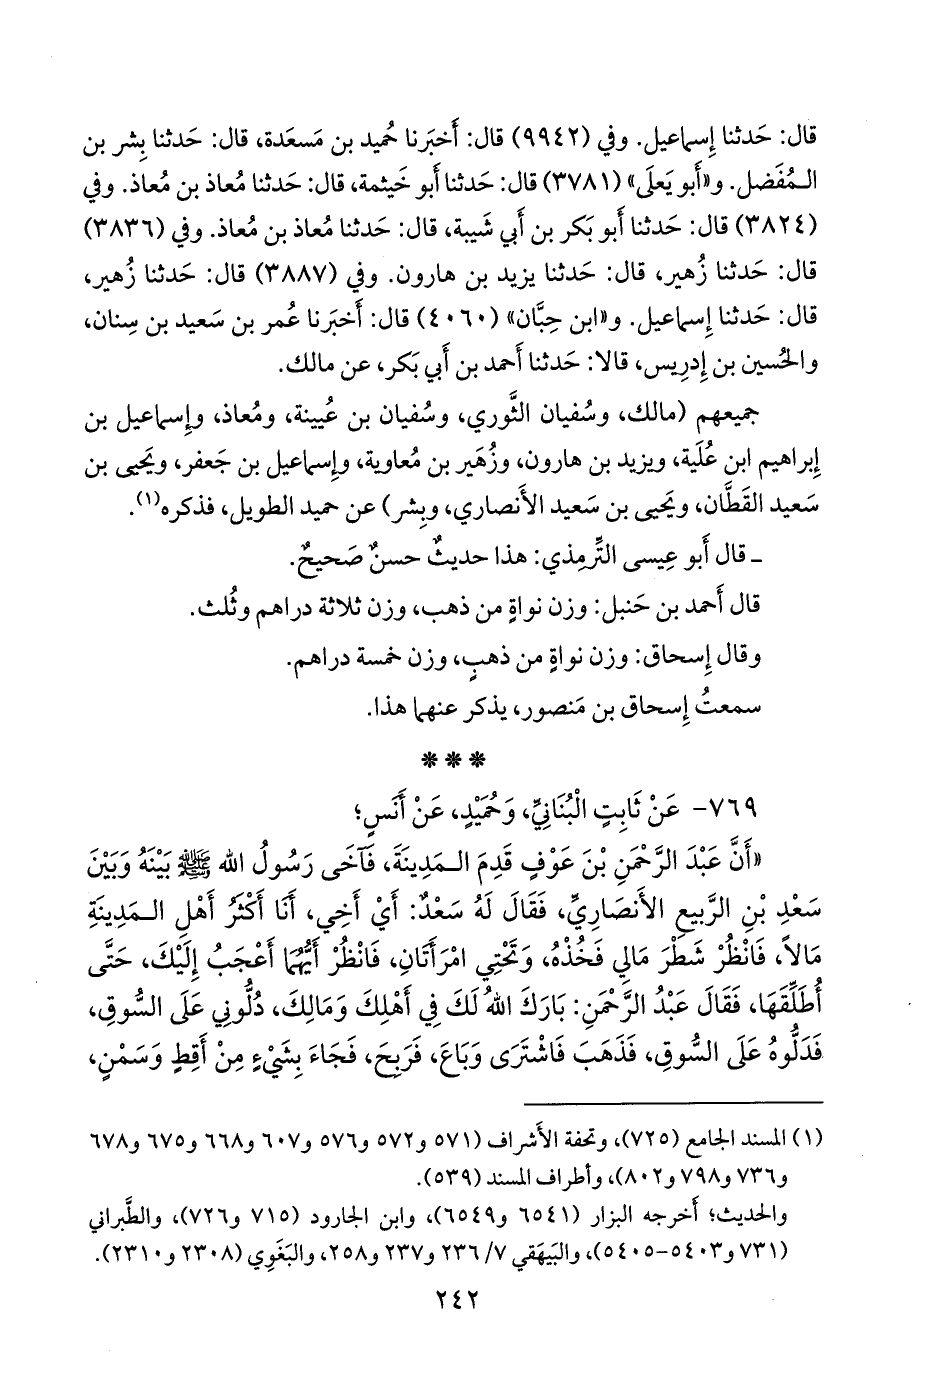 قال: حَدثنا إِسماعيل. وفي (٩٩٤٢) قال: أَخبَرنا حُميد بن مَسعَدة، قال: حَدثنا بِشر بن
المُفَضل. و«أَبو يَعلَى» (٣٧٨١) قال: حَدثنا أَبو خَيثمة، قال: حَدثنا مُعاذ بن مُعاذ. وفي
(٣٨٢٤) قال: حَدثنا أَبو بَكر بن أَبي شَيبة، قال: حَدثنا مُعاذ بن مُعاذ. وفي (٣٨٣٦)
قال: حَدثنا زُهير، قال: حَدثنا يزيد بن هارون. وفي (٣٨٨٧) قال: حَدثنا زُهير،
قال: حَدثنا إِسماعيل. و«ابن حِبَّان» (٤٠٦٠) قال: أَخبَرنا عُمر بن سَعيد بن سِنان،
والحُسين بن إِدرِيس، قالا: حَدثنا أَحمد بن أَبي بَكر، عن مالك.
جميعهم (مالك، وسُفيان الثَّوري، وسُفيان بن عُيينة، ومُعاذ، وإِسماعيل بن
إِبراهيم ابن عُلَية، ويزيد بن هارون، وزُهَير بن مُعاوية، وإِسماعيل بن جَعفر، ويَحيى بن
سَعيد القَطَّان، ويَحيى بن سَعيد الأَنصاري، وبِشر) عن حميد الطويل، فذكره(١).
ـ قال أَبو عِيسى التِّرمِذي: هذا حديثٌ حسنٌ صَحيحٌ.
قال أَحمد بن حَنبل: وزن نواةٍ من ذهب، وزن ثلاثة دراهم وثُلث.
وقال إِسحاق: وزن نواةٍ من ذهبٍ، وزن خمسة دراهم.
سمعتُ إِسحاق بن مَنصور، يذكر عنهما هذا.
***
٧٦٩- عَنْ ثَابِتٍ الْبُنَانِيِّ، وَحُمَيْدٍ، عَنْ أَنَسٍ؛
«أَنَّ عَبْدَ الرَّحْمَنِ بْنَ عَوْفٍ قَدِمَ الـمَدِينَةَ، فَآخَى رَسُولُ الله ﷺ بَيْنَهُ وَبَيْنَ
سَعْدِ بْنِ الرَّبِيعِ الأَنصَارِيِّ، فَقَالَ لَهُ سَعْدٌ: أَيْ أَخِي، أَنَا أَكْثَرُ أَهْلِ الـمَدِينَةِ
مَالاً، فَانْظُرْ شَطْرَ مَالِي فَخُذْهُ، وَتَحْتِي امْرَأَتَانِ، فَانْظُرْ أَيُّهُمَا أَعْجَبُ إِلَيْكَ، حَتَّى
أُطَلِّقَهَا، فَقَالَ عَبْدُ الرَّحْمَنِ: بَارَكَ اللهُ لَكَ فِي أَهْلِكَ وَمَالِكَ، دُلُّونِي عَلَى السُّوقِ،
فَدَلُّوهُ عَلَى السُّوقِ، فَذَهَبَ فَاشْتَرَى وَبَاعَ، فَرَبِحَ، فَجَاءَ بِشَيْءٍ مِنْ أَقِطٍ وَسَمْنٍ،
(١) المسند الجامع (٧٢٥)، وتحفة الأَشراف (٥٧١ و٥٧٢ و٥٧٦ و٦٠٧ و٦٦٨ و٦٧٥ و٦٧٨
و٧٣٦ و٧٩٨ و٨٠٢)، وأطراف المسند (٥٣٩).
والحديث؛ أخرجه البزار (٦٥٤١ و٦٥٤٩)، وابن الجارود (٧١٥ و٧٢٦)، والطَّبراني
(٧٣١ و٥٤٠٣-٥٤٠٥)، والبَيهَقي ٧/ ٢٣٦ و٢٣٧ و٢٥٨، والبَغَوِي (٢٣٠٨ و٢٣١٠).
٢٤٢